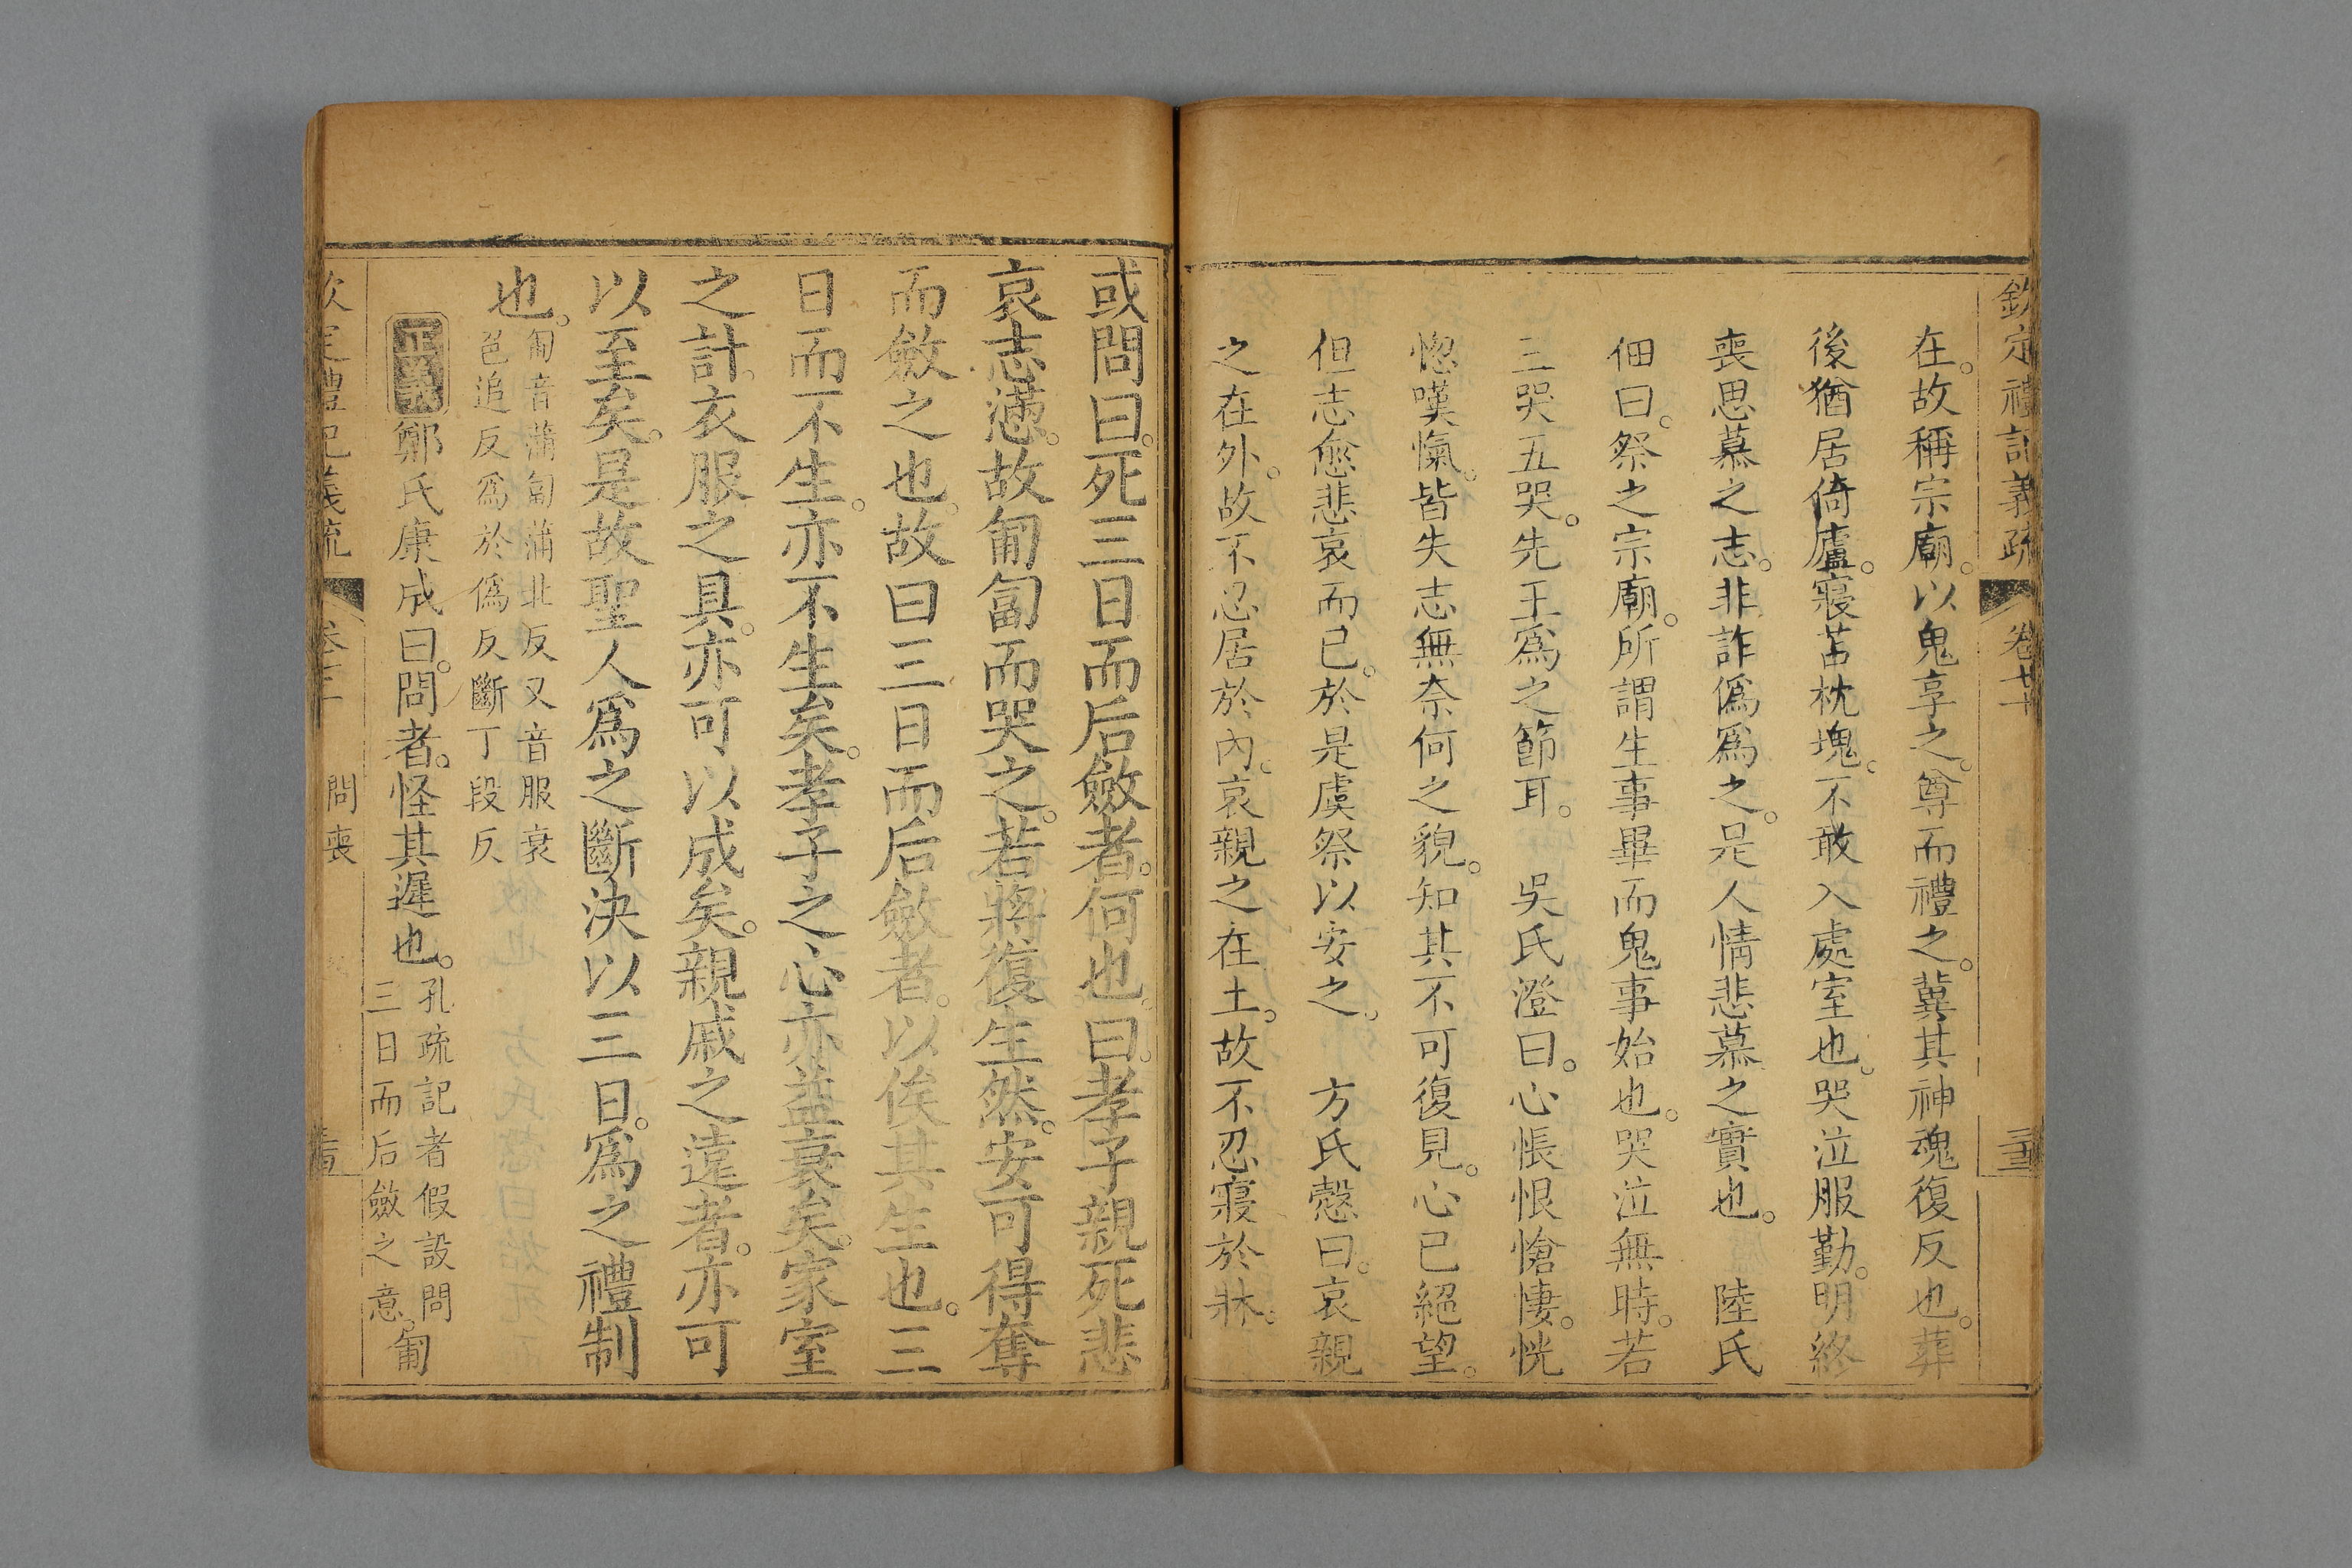 欽定禮記義疏 卷七十
在。故稱宗廟。以鬼享之。尊而禮之。冀其神魂復反也。葬
後猶居倚廬。寢苫枕塊。不敢入處室也。哭泣服勤。明終
喪思慕之志。非詐僞爲之。是人情悲慕之實也。　陸氏
佃曰。祭之宗廟。所謂生事畢而鬼事始也。哭泣無時。若
三哭五哭。先王爲之節耳。　吳氏澄曰。心悵恨愴悽。恍
惚嘆愾。皆失志無奈何之貌。知其不可復見。心已絕望。
但志愈悲哀而已。於是虞祭以安之。　方氏慤曰。哀親
之在外。故不忍居於內。哀親之在土。故不忍寢於牀。
或問曰。死三日而后斂者。何也。曰。孝子親死悲
哀志懣。故匍匐而哭之。若將復生然。安可得奪
而斂之也。故曰三日而后斂者。以俟其生也。三
日而不生。亦不生矣。孝子之心亦益衰矣。家室
之計。衣服之具。亦可以成矣。親戚之遠者。亦可
以至矣。是故聖人爲之斷決以三日。爲之禮制
也。
匍音蒲匐蒲北反又音服衰
色追反爲於僞反斷丁段反
正義鄭氏康成曰。問者。怪其遲也。
孔疏記者假設問
三日而后斂之意。
匍
欽定禮記義疏
問喪